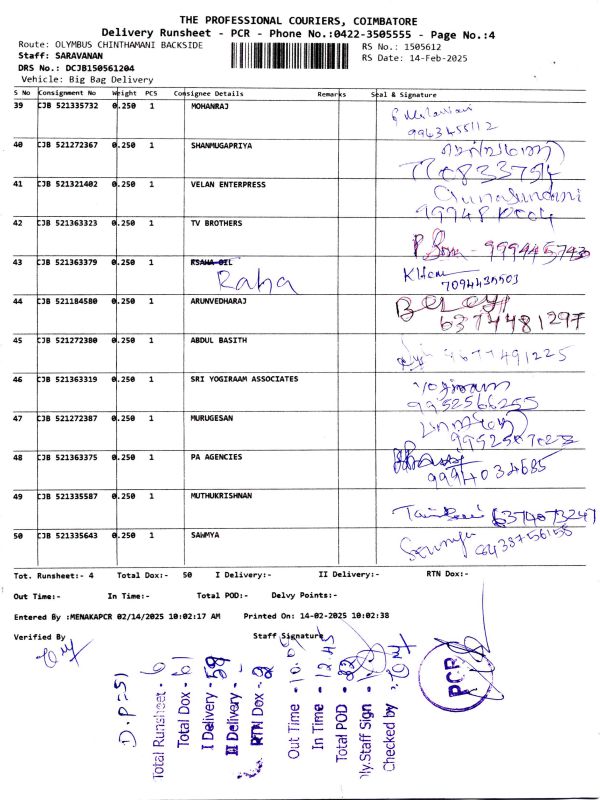 THE PROFESSIONAL COURIERS, COIMBATORE
Delivery Runsheet - PCR - Phone No.:0422-3505555 - Page No.:4
Route: OLYMBUS CHINTHAMANI BACKSIDE RS No.: 1505612
Staff: SARAVANAN RS Date: 14-Feb-2025
DRS No.: DCJB150561204
Vehicle: Big Bag Delivery
S No Consignment No Weight PCS Consignee Details Remarks Seal & Signature
39 CJB 521335732 0.250 1 MOHANRAJ
9963455112
40 CJB 521272367 0.250 1 SHANMUGAPRIYA
41 CJB 521321402 0.250 1 VELAN ENTERPRESS Gunasundari
42 CJB 521363323 0.250 1 TV BROTHERS
43 CJB 521363379 0.250 1 RSAHA OIL
Raha 7094435503
44 CJB 521184580 0.250 1 ARUNVEDHARAJ
6374481297
45 CJB 521272380 0.250 1 ABDUL BASITH 9677491225
46 CJB 521363319 0.250 1 SRI YOGIRAAM ASSOCIATES Yogiraam
9952566255
47 CJB 521272387 0.250 1 MURUGESAN
48 CJB 521363375 0.250 1 PA AGENCIES
9994034685
49 CJB 521335587 0.250 1 MUTHUKRISHNAN
6374073247
50 CJB 521335643 0.250 1 SAWMYA
Tot. Runsheet:- 4 Total Dox:- 50 I Delivery:- II Delivery:- RTN Dox:-
Out Time:- In Time:- Total POD:- Delvy Points:-
Entered By :MENAKAPCR 02/14/2025 10:02:17 AM Printed On: 14-02-2025 10:02:38
Verified By Staff Signature
D.P=51
Total Runsheet - 6
Total Dox - 61
I Delivery - 59
II Delivery -
RTN Dox - 2
Out Time - 10.09
In Time - 12.45
Total POD -
Dly.Staff Sign -
Checked by -
PCR